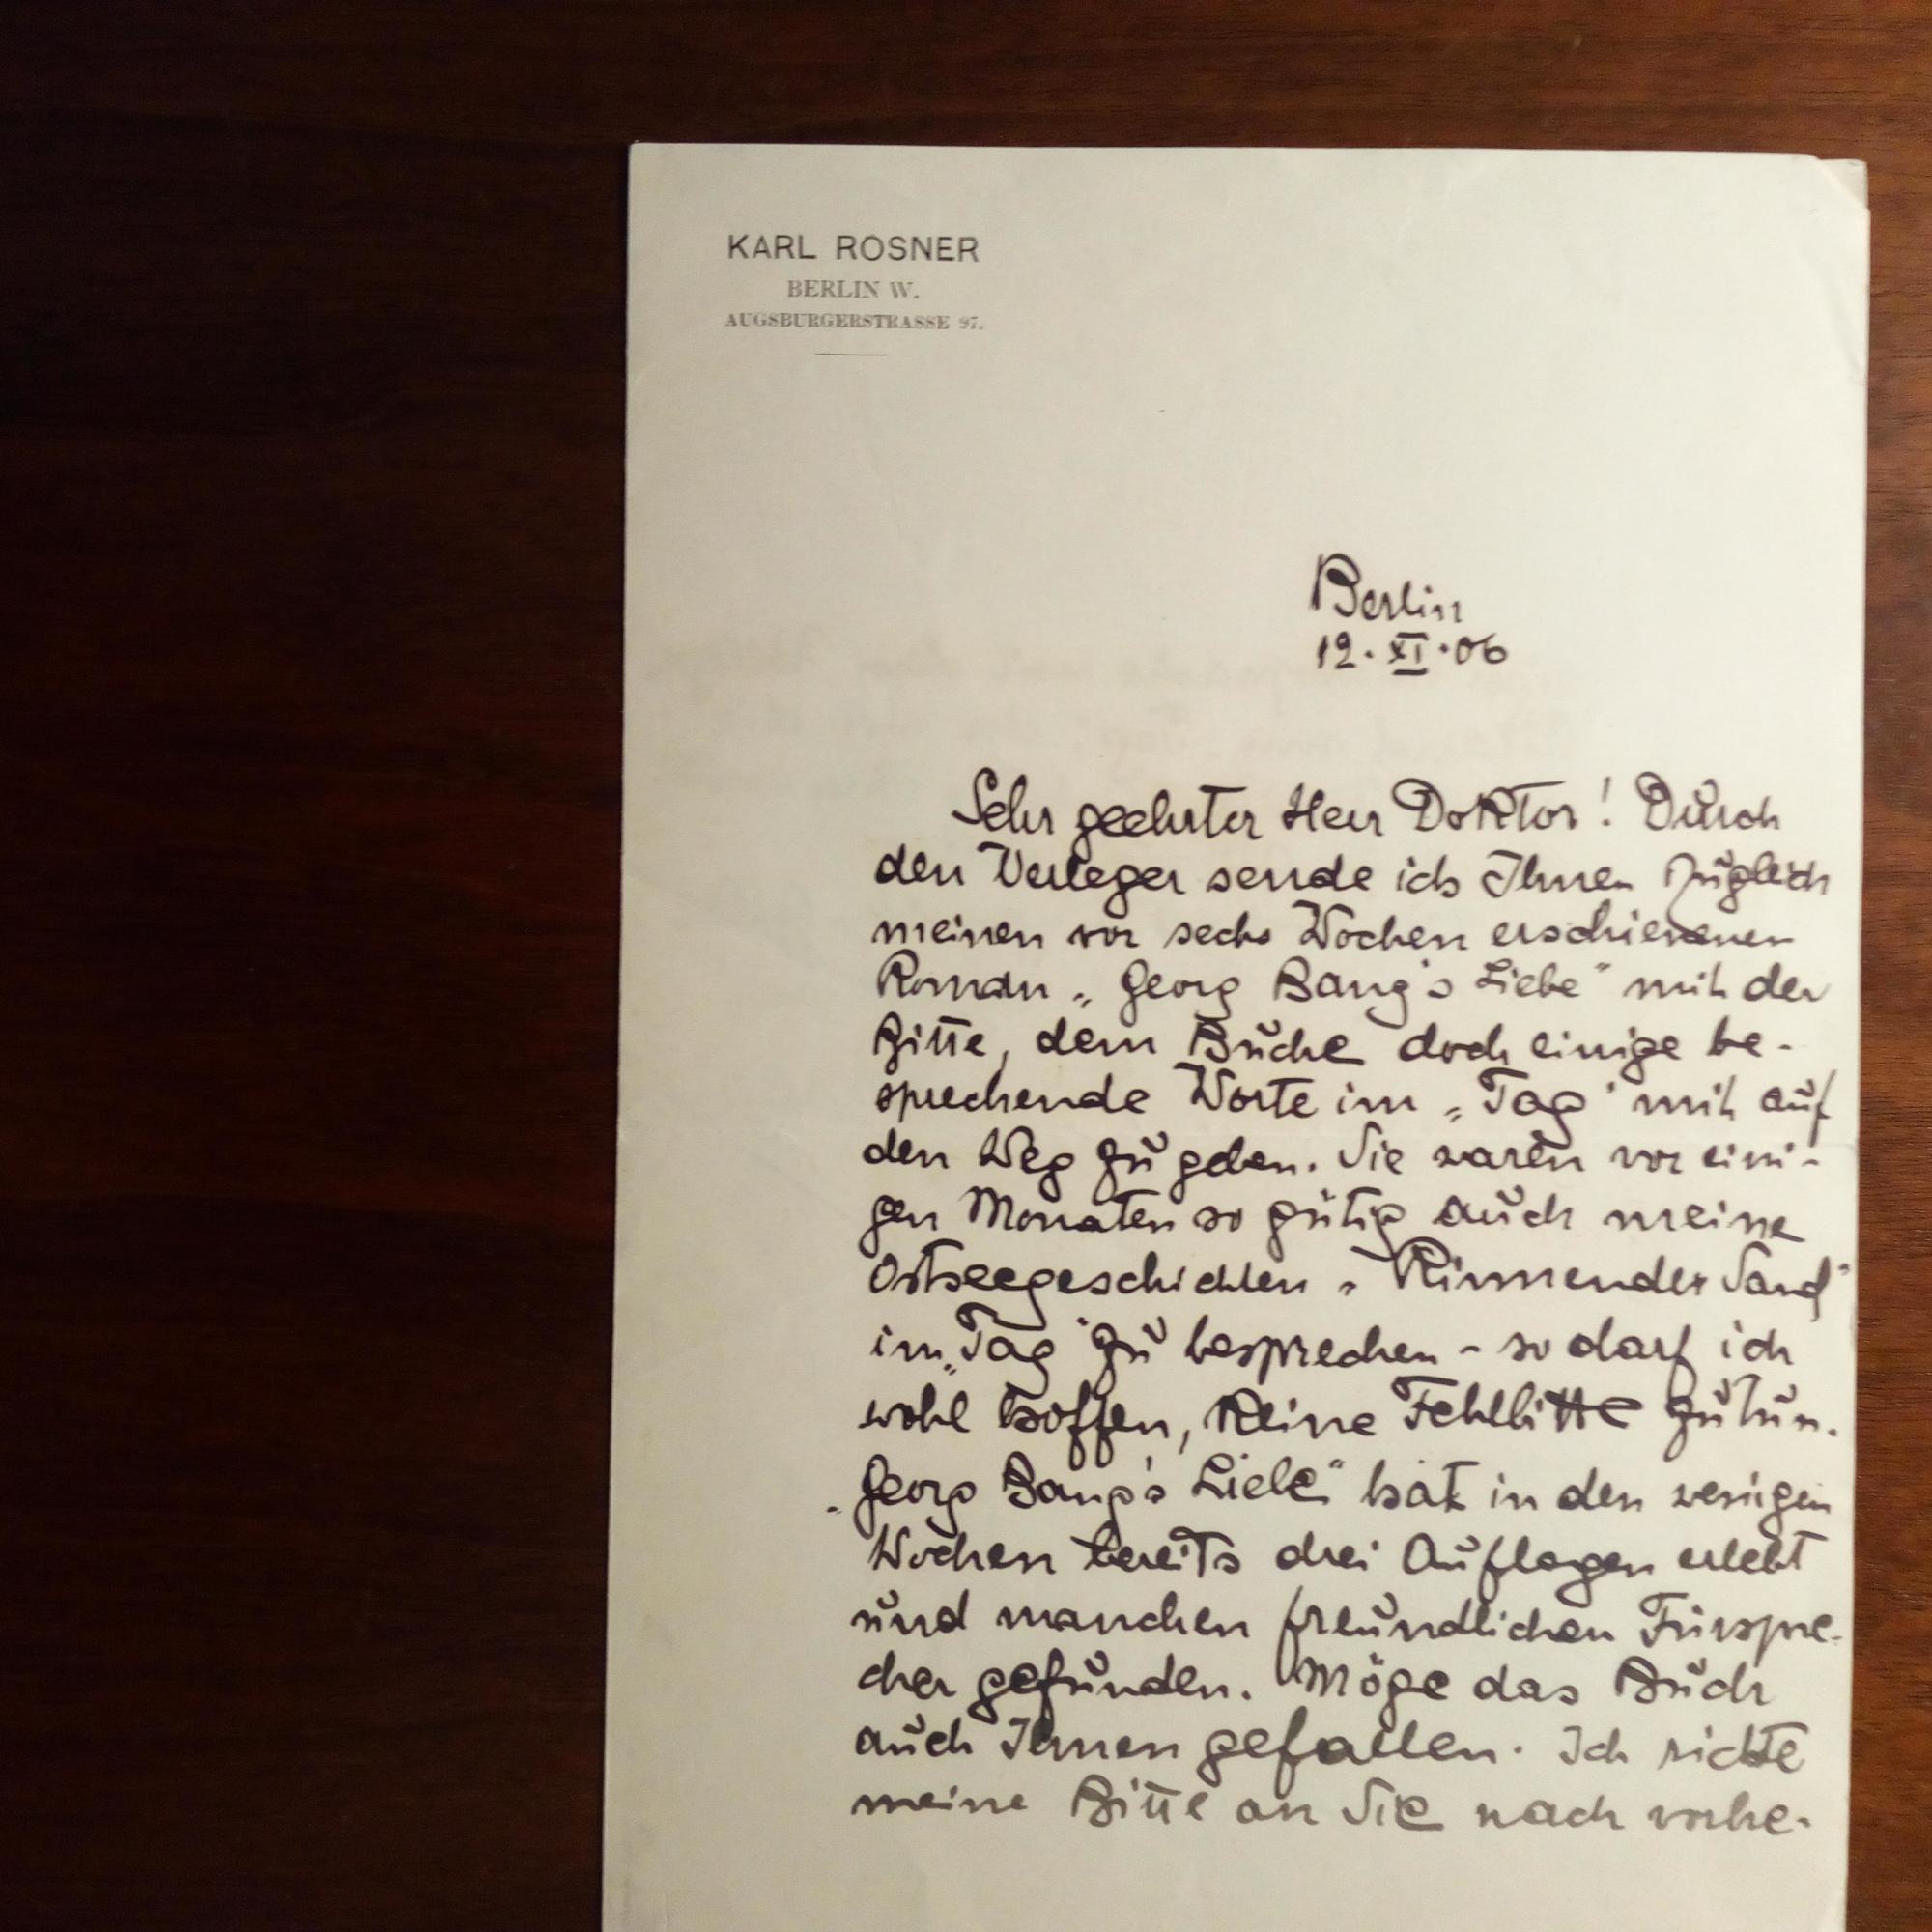 KARL ROSNER
BERLIN W.
AUGSBURGERSTRASSE 97.
Berlin
12. XI. 06
Sehr geehrter Herr Doktor! Durch
den Verleger sende ich Ihnen zugleich
meinen vor sechs Wochen erschienenen
Roman „Georg Bang's Liebe" mit der
Bitte, dem Buche doch einige be-
sprechende Worte im „Tag" mit auf
den Weg zu geben. Sie waren vor eini-
gen Monaten so gütig auch meine
Ostseegeschichten „Rinnender Sand"
im „Tag" zu besprechen - so darf ich
wohl hoffen, keine Fehlbitte zu tun.
„Georg Bang's Liebe" hat in den wenigen
Wochen bereits drei Auflagen erlebt
und manchen freundlichen Fürspre-
cher gefunden. Möge das Buch
auch Ihnen gefallen. Ich richte
meine Bitte an Sie nach vorhe-